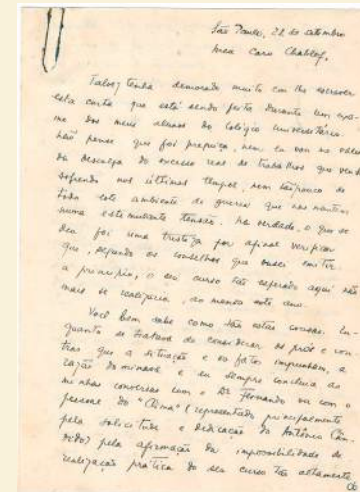 São Paulo, 22 de setembro
Meu caro Chablof,
Talvez tenha demorado muito em lhe escrever
esta carta que está sendo feita durante um exa-
me dos meus alunos do Colégio Universitário.
Não pense que foi preguiça, nem eu vou me valer
da desculpa do excesso real de trabalhos que venho
sofrendo nos últimos tempos, nem tampouco de
todo este ambiente de guerra que nos mantem
numa estimulante tensão. Na verdade, o que se
deu foi uma tristeza por afinal verificar
que, segundo os conselhos que ousei emitir
a princípio, o seu curso tão esperado aqui não
mais se realizaria, ao menos este ano.
Você bem sabe como são estas cousas. En-
quanto se tratava de considerar os prós e con-
tras que a situação e os fatos impunham, a
razão dominava e eu sempre concluia as
minhas conversas com o Dr Fernando ou com o
pessoal do "Clima" (representado principalmente
pela solicitude e dedicação do Antônio Cân-
dido) pela afirmação da impossibilidade de
realização prática do seu curso tão altamente